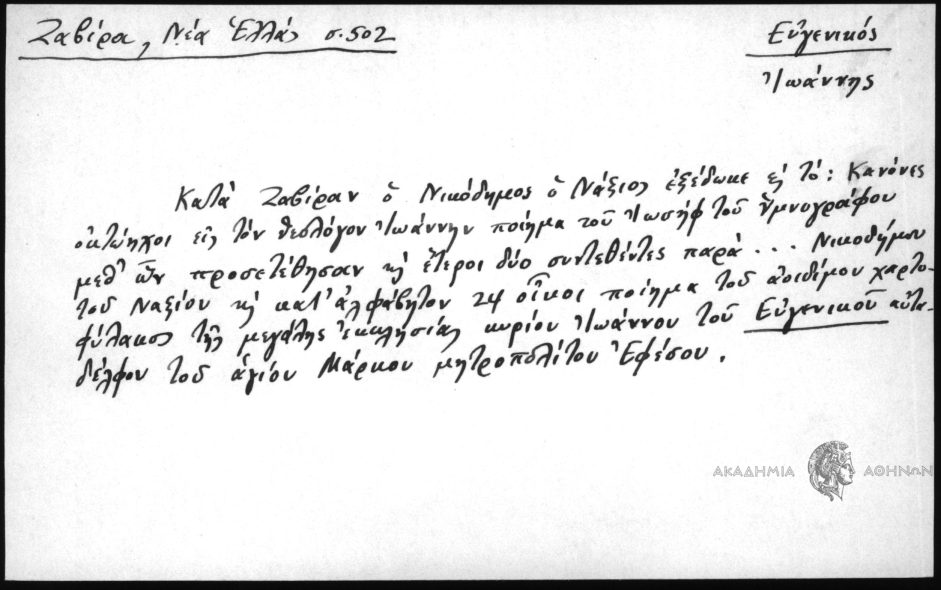 Ζαβίρα, Νέα Ἑλλάς σ. 502
Εὐγενικός
Ἰωάννης
Κατὰ Ζαβίραν ὁ Νικόδημος ὁ Νάξιος ἐξέδωκε εἰς τό: Κανόνες
ὀκτώηχοι εἰς τὸν θεολόγον Ἰωάννην ποίημα τοῦ Ἰωσὴφ τοῦ ὑμνογράφου
μεθ' ὧν προσετέθησαν κ ἕτεροι δύο συντεθέντες παρὰ... Νικοδήμου
τοῦ Ναξίου κ κατ' ἀλφάβητον 24 οἶκοι ποίημα τοῦ ἀοιδίμου χαρτο-
φύλακος τῆς μεγάλης ἐκκλησίας κυρίου Ἰωάννου τοῦ Εὐγενικοῦ αὐτα-
δέλφου τοῦ ἁγίου Μάρκου μητροπολίτου Ἐφέσου.
ΑΚΑΔΗΜΙΑ ΑΘΗΝΩΝ